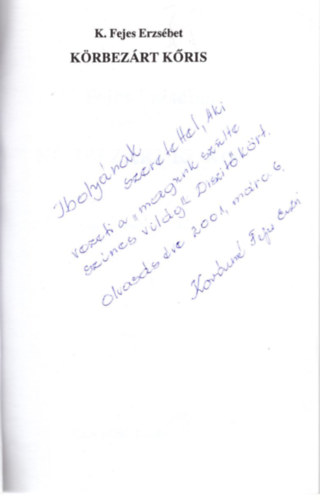 K. Fejes Erzsébet
KÖRBEZÁRT KŐRIS
Ibolyának
szeretettel, Aki
vezeti a „magunk szülte
színes világ" Díszítőkört.
Olvasás éve 2001, márc 6.
Kovácsné Fejes Erzsi